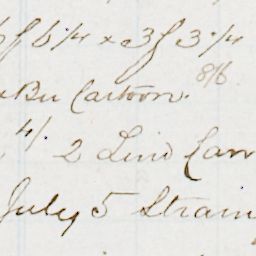 6 1/4 x 3 f 3 1/4
Bu Cartoon 8/6
4/. 2 Lino Can
July 5 Strain